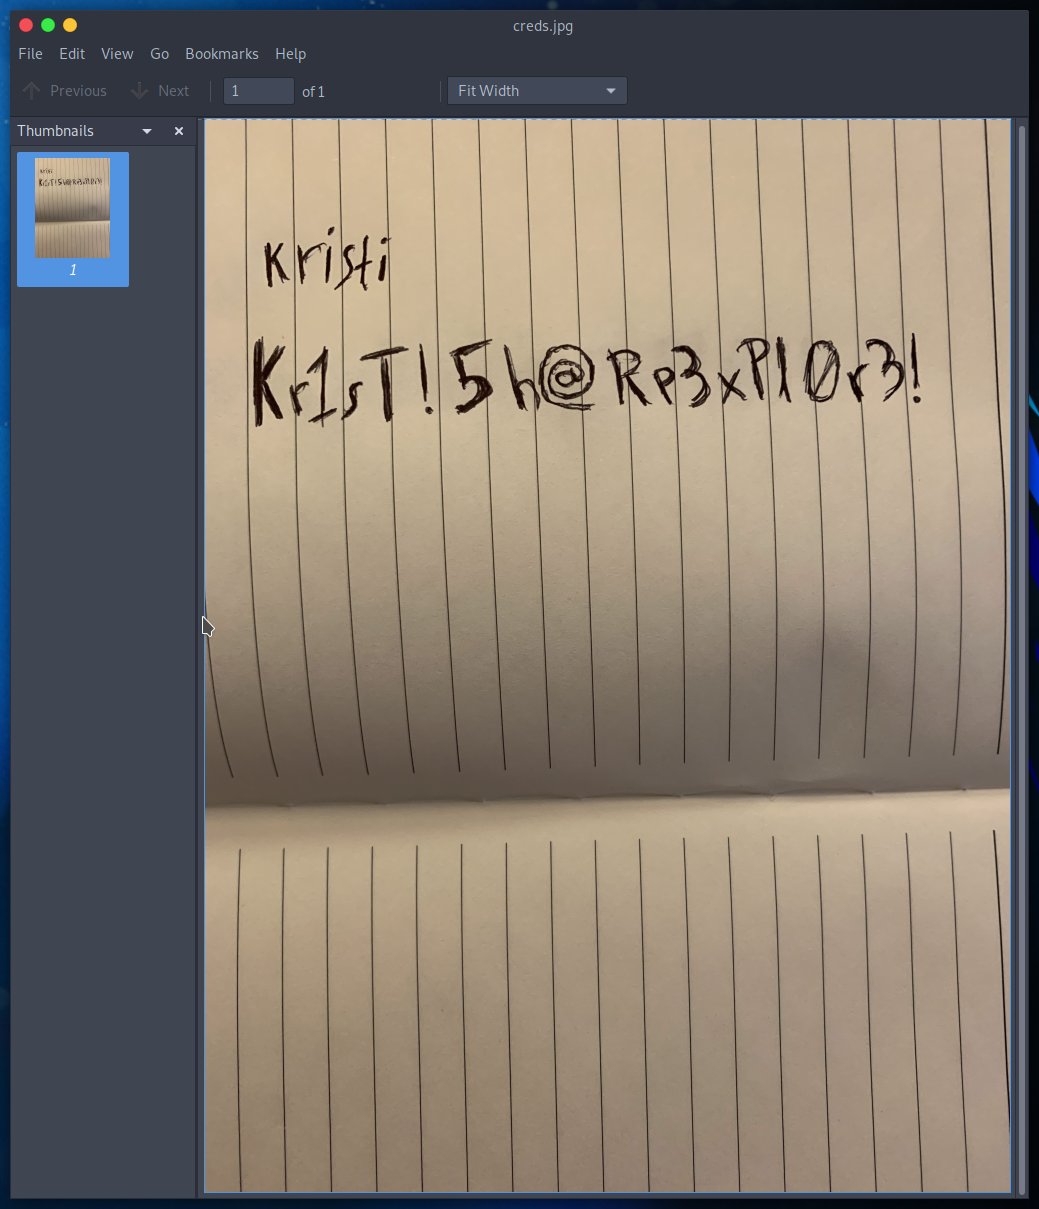 creds.jpg
File Edit View Go Bookmarks Help
Previous Next 1 of 1 Fit Width
Thumbnails
1
kristi
Kr1sT!5h@Rp3xPl0r3!